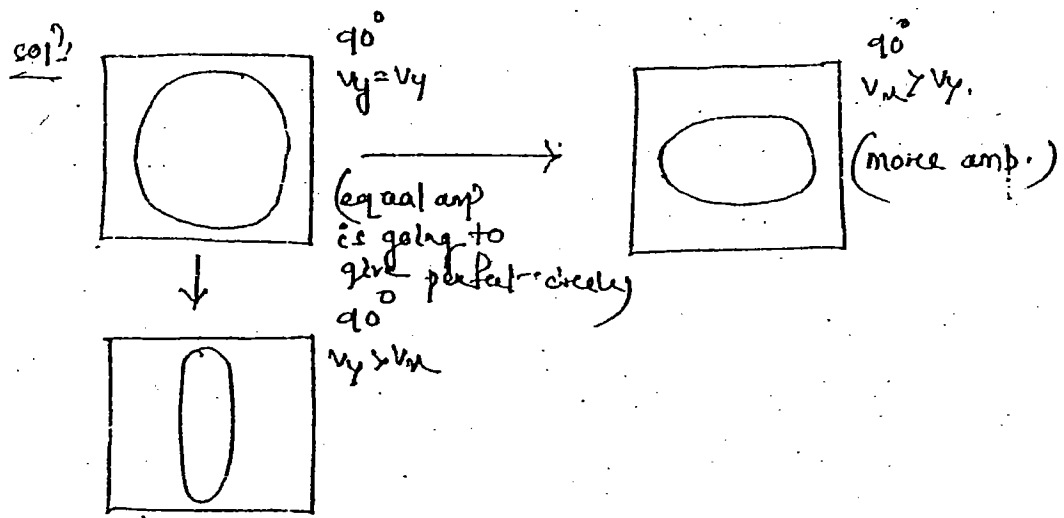 solⁿ:
90°
Vy = Vy
(equal amp
is going to
give perfect circle)
90°
Vx > Vy.
(more amp.)
90°
Vy > Vx